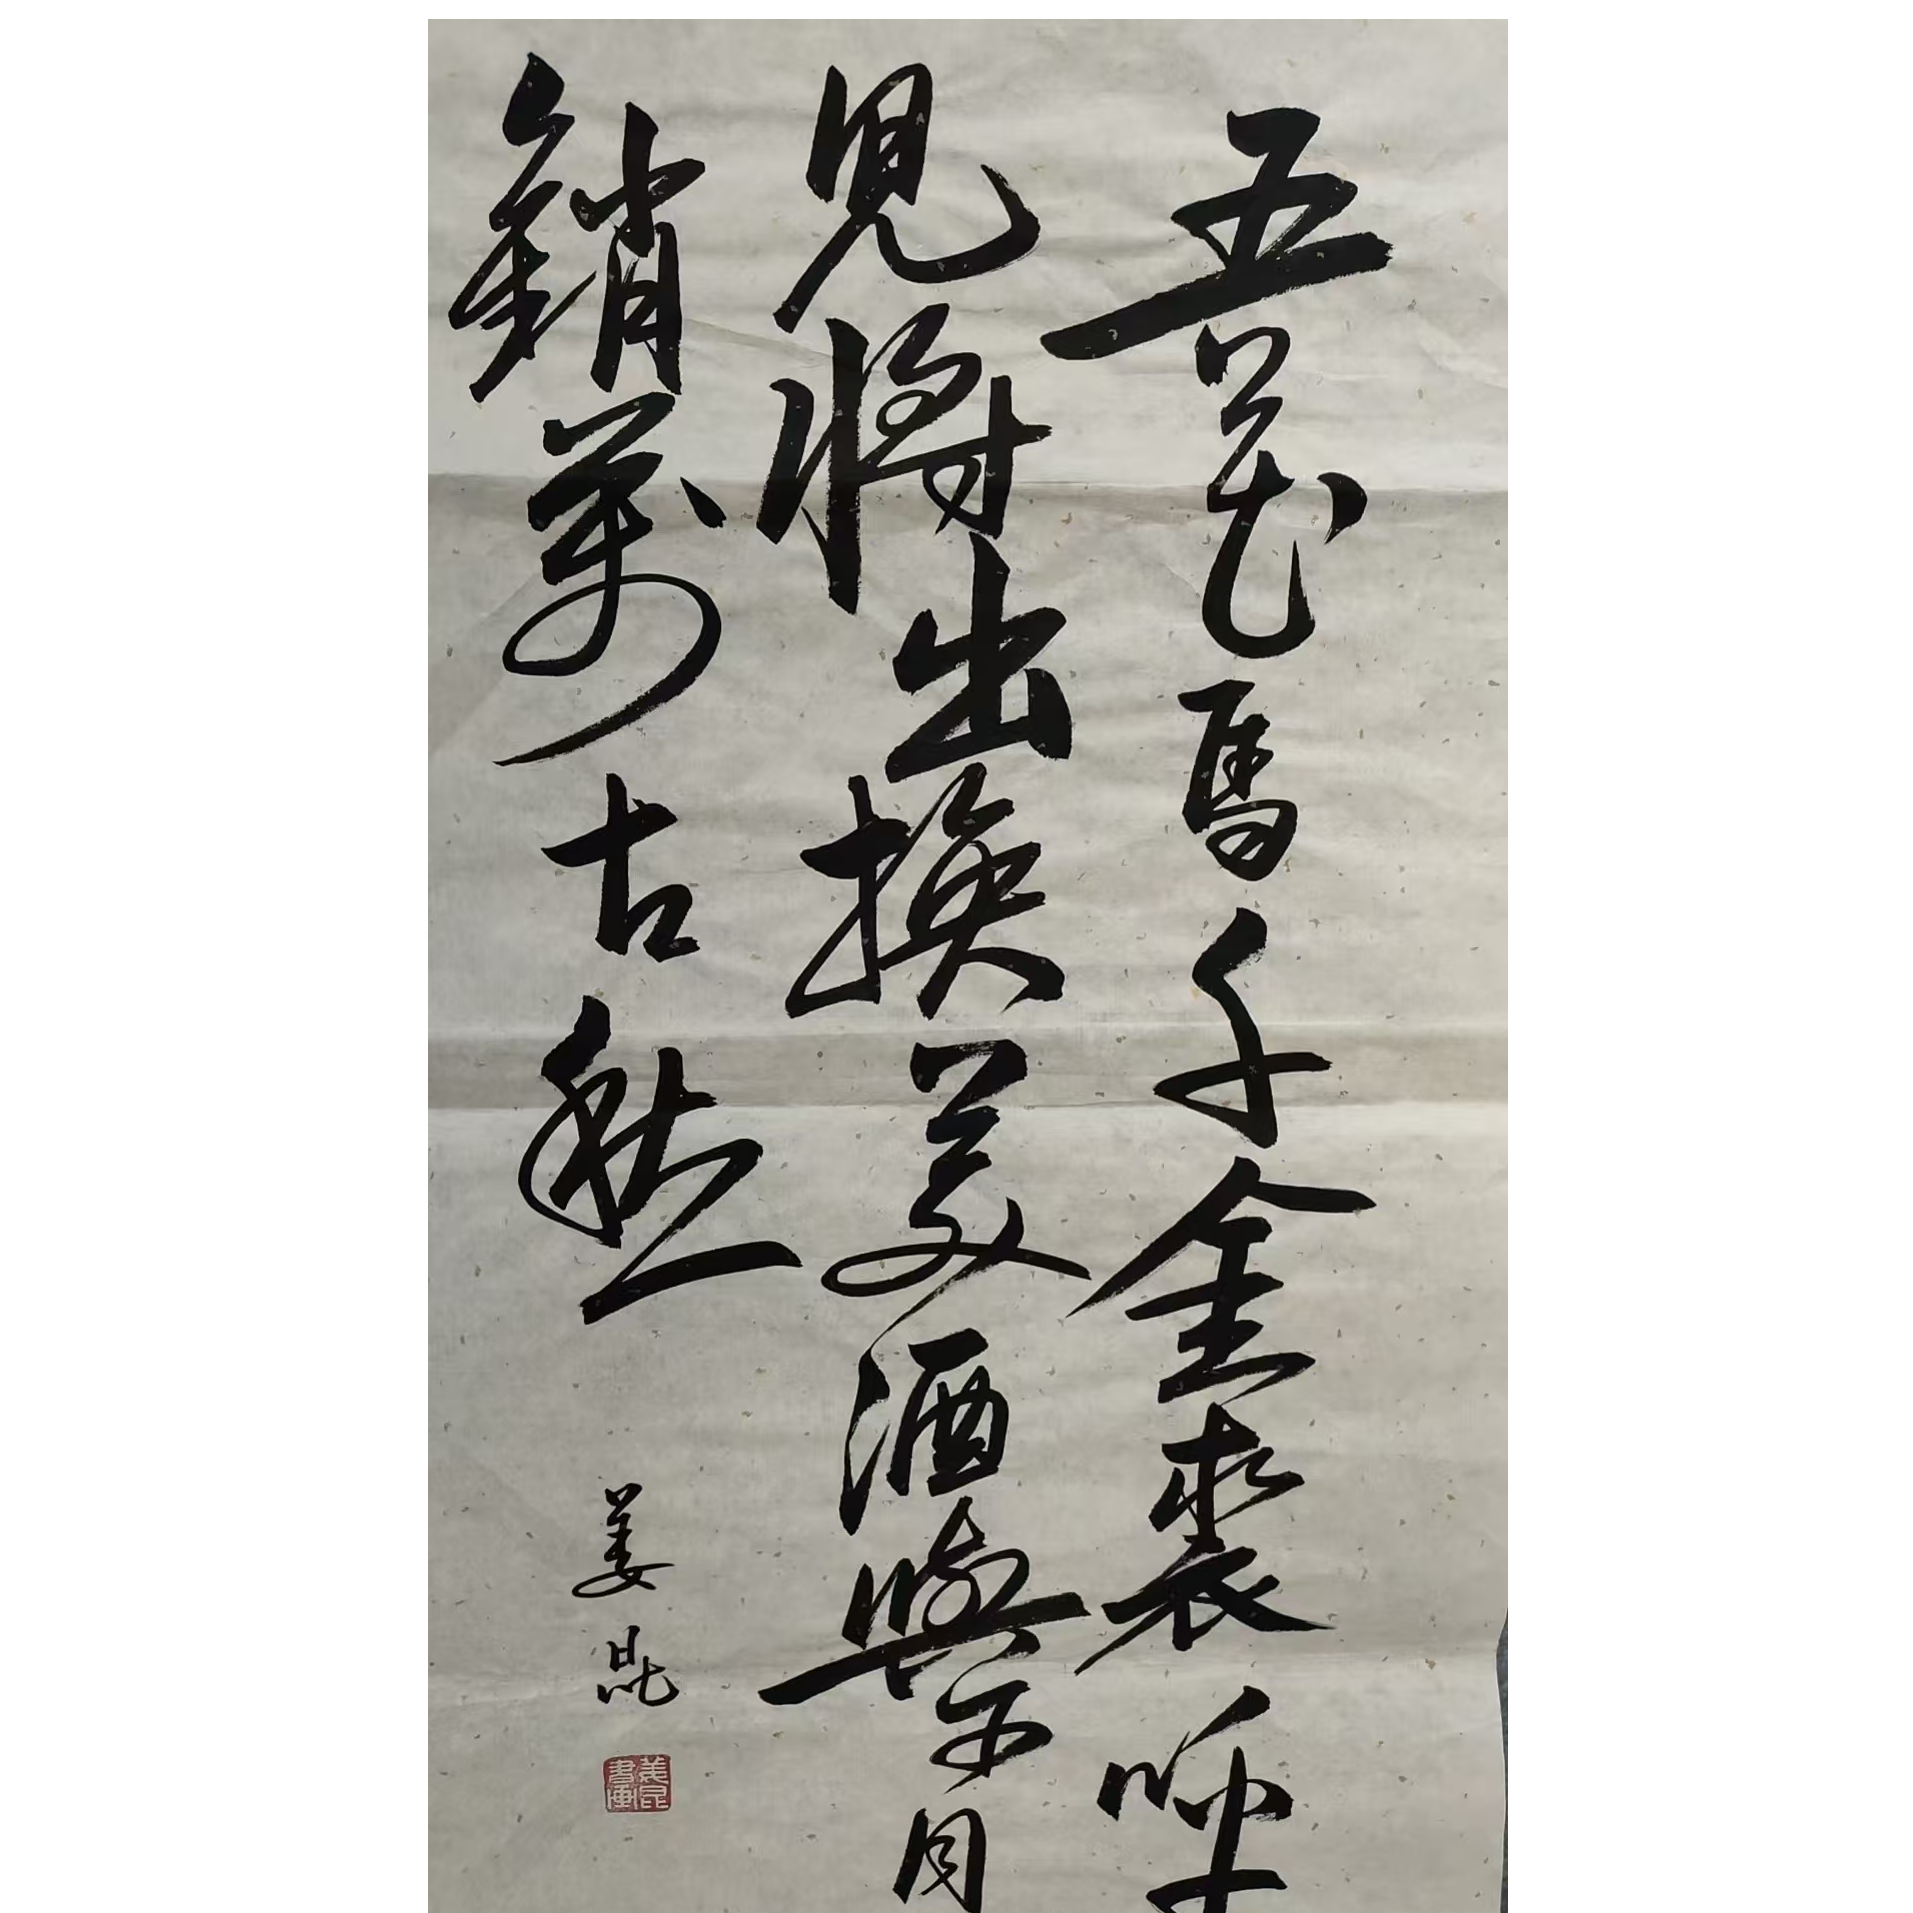 五花馬千金裘呼
兒將出換美酒與尔同
銷萬古愁
姜昆
姜昆書画